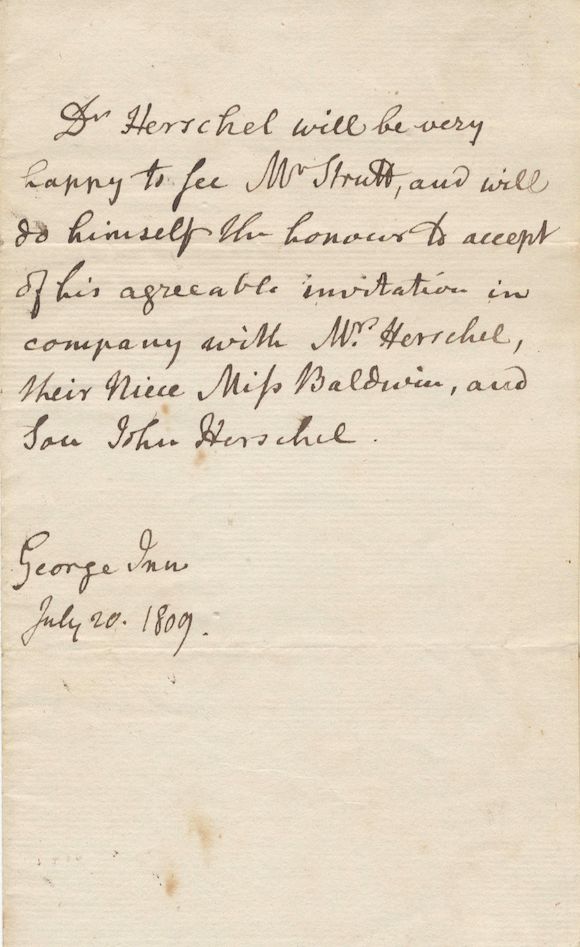 Dr Herschel will be very
happy to see Mr Strutt, and will
do himself the honour to accept
of his agreeable invitation in
company with Mrs. Herschel,
their Niece Miſs Baldwin, and
Son John Herschel.
George Inn
July 20. 1809.